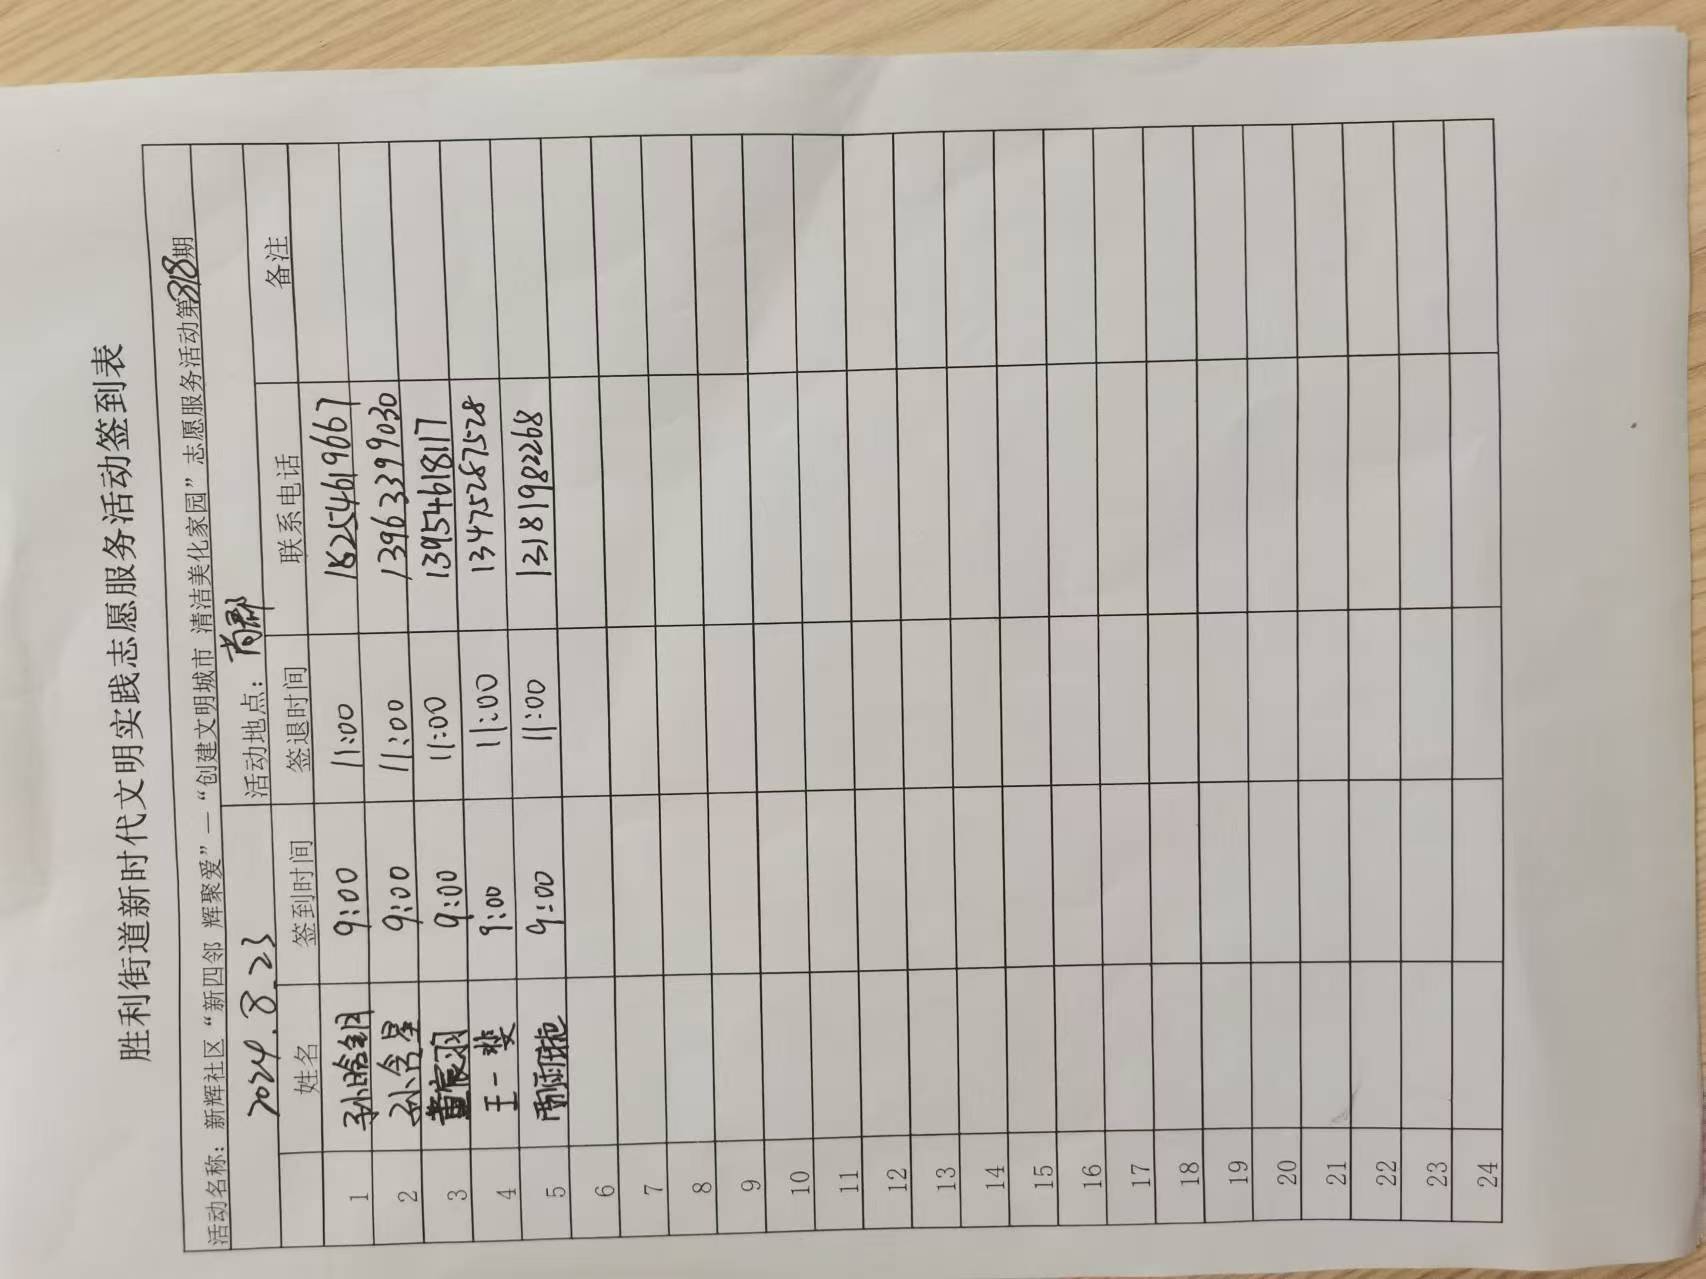 胜利街道新时代文明实践志愿服务活动签到表
活动名称：新辉社区“新四邻 辉聚爱”—“创建文明城市 清洁美化家园”志愿服务活动第318期
2024.8.23 活动地点：尚郡
姓名 签到时间 签退时间 联系电话 备注
1 孙晗钥 9:00 11:00 18254619667
2 孙含星 9:00 11:00 13963399030
3 董宸羽 9:00 11:00 13954618117
4 王一斐 9:00 11:00 13475287528
5 9:00 11:00 13181982268
6
7
8
9
10
11
12
13
14
15
16
17
18
19
20
21
22
23
24